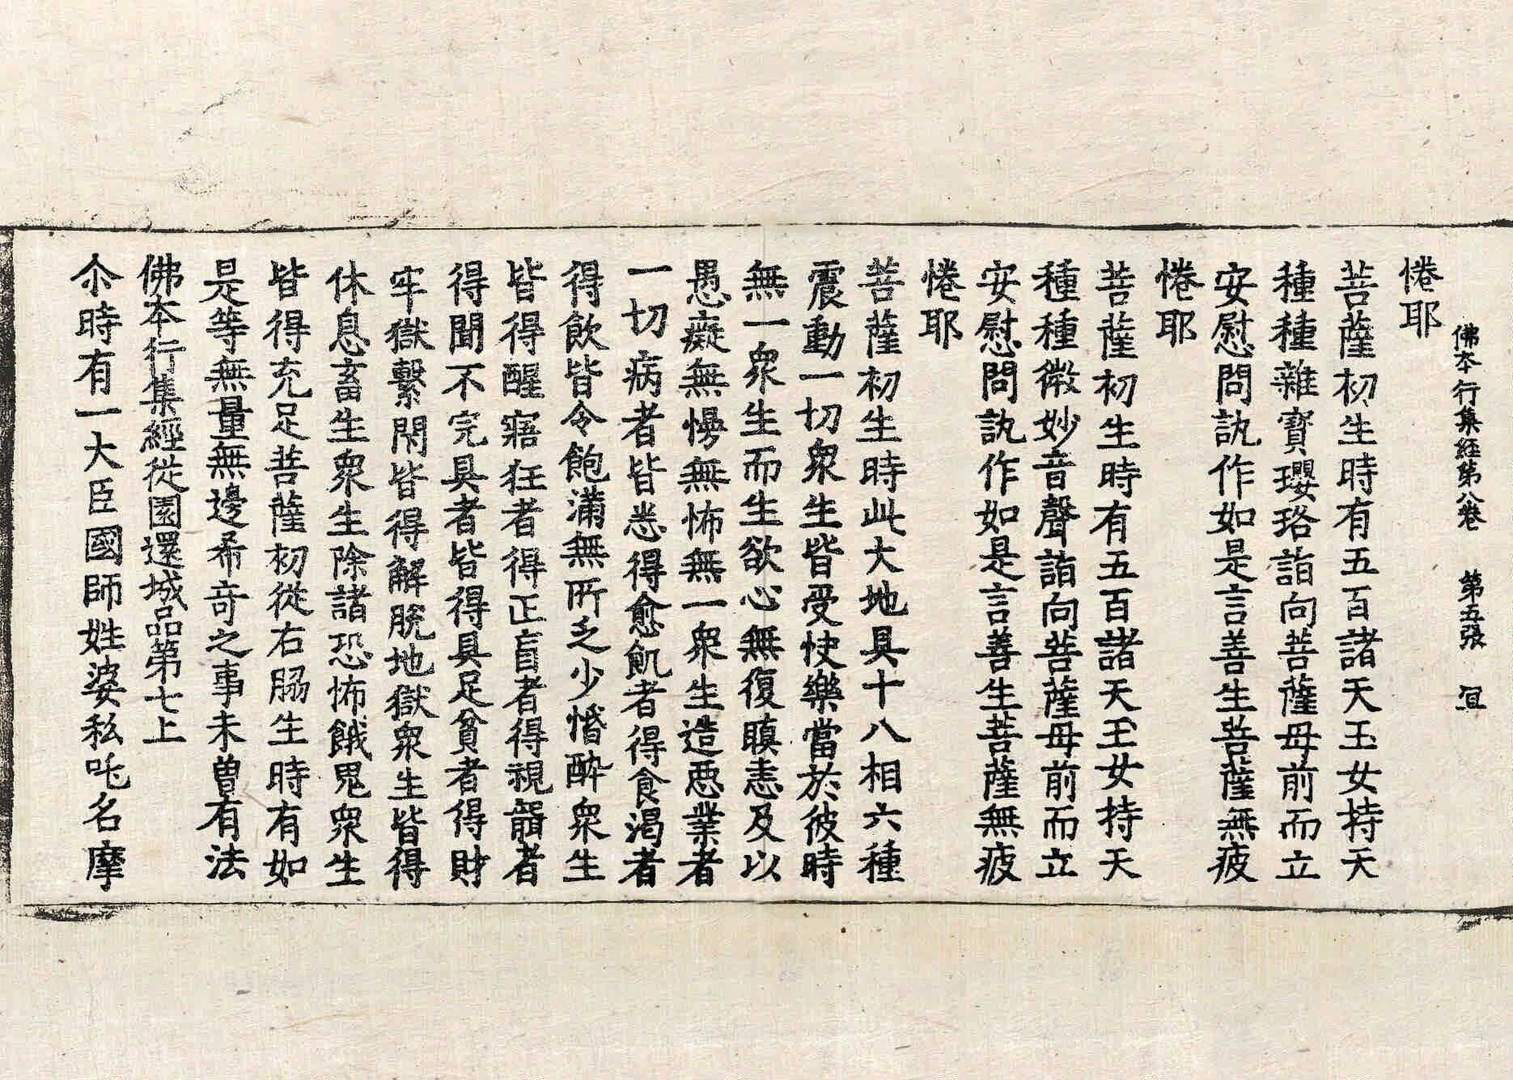 佛本行集経第八巻　第五張　宜
惓耶
菩薩初生時有五百諸天玉女持天
種種雜寶瓔珞詣向菩薩母前而立
安慰問訊作如是言善生菩薩無疲
惓耶
菩薩初生時有五百諸天玉女持天
種種微妙音聲詣向菩薩母前而立
安慰問訊作如是言善生菩薩無疲
惓耶
菩薩初生時此大地具十八相六種
震動一切衆生皆受快樂當於彼時
無一衆生而生欲心無復瞋恚及以
愚癡無慢無怖無一衆生造惡業者
一切病者皆悉得愈飢者得食渴者
得飲皆令飽滿無所乏少惛酔衆生
皆得醒寤狂者得正盲者得視聾者
得聞不完具者皆得具足貧者得財
牢獄繫閉皆得解脫地獄衆生皆得
休息畜生衆生除諸恐怖餓鬼衆生
皆得充足菩薩初從右脇生時有如
是等無量無邊希奇之事未曾有法
佛本行集經從園還城品第七上
尒時有一大臣國師姓婆私吒名摩